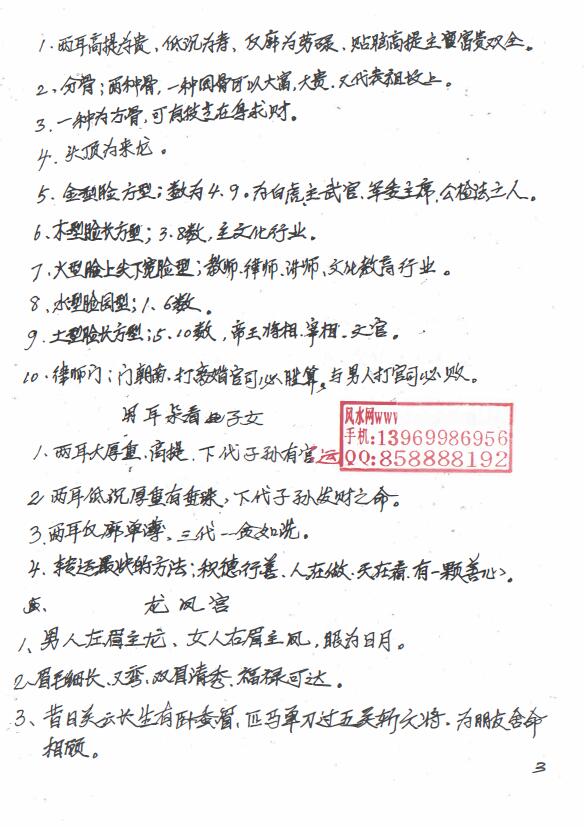 1. 两耳高提为贵，低沉为寿、反廓为劳碌，贴脑高提主富贵双全。
2、分骨；两种骨，一种圆骨可以大富，大贵。又代表祖坟上。
3. 一种为方骨，可有技艺在身求财。
4. 头顶为来龙。
5. 金型脸方型；数为4.9。为白虎主武官、军委主席，公检法之人。
6. 木型脸长方型；3.8数，主文化行业。
7、火型脸上尖下宽脸型；教师、律师、讲师、文化教育行业。
8、水型脸园型；1、6数。
9. 土型脸长方型；5.10数，帝王将相.宰相.文官。
10、律师门；门朝南、打离婚官司必胜算。与男人打官司必败。
用耳朵看子女
风水网www
手机:13969986956
QQ:858888192
1、两耳大厚重、高提、下代子孙有官运
2 两耳低沉厚重有垂珠、下代子孙发财之命。
3. 两耳反廓单薄、三代一贫如洗。
4、转运最快的方法；积德行善、人在做.天在看.有一颗善心。
龙凤宫
1、男人左眉主龙、女人右眉主凤，眼为日月。
2、眉毛细长、又弯、双眉清秀、福禄可达。
3、昔日关云长生有卧蚕眉、匹马单刀过五关斩六将、为朋友舍命
相顾。
3